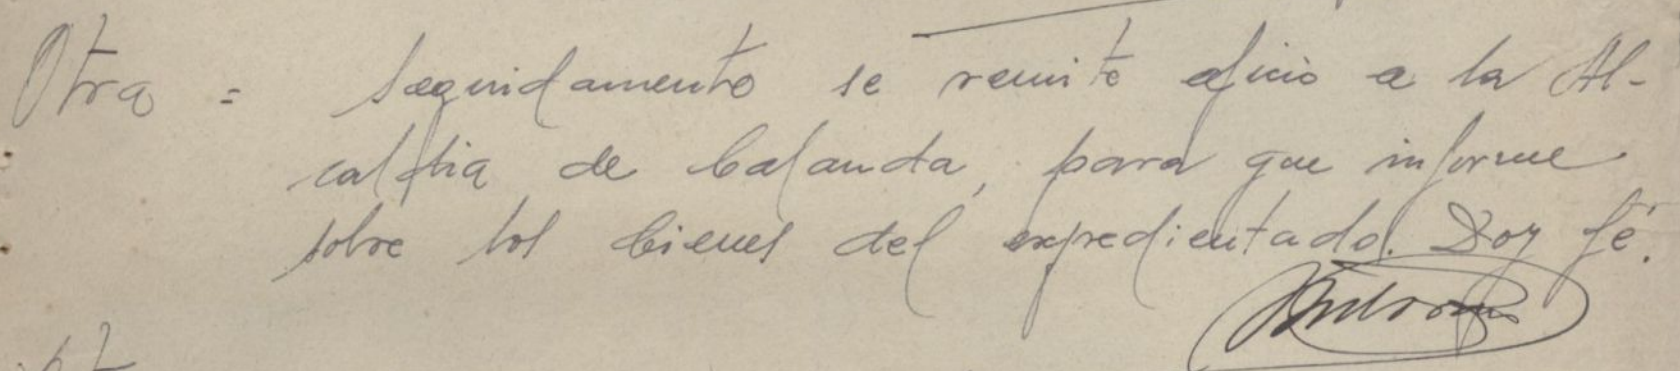 Otra = Seguidamente se remite oficio a la Al-
caldia de Calanda, para que informe
sobre los bienes del expedientado. Doy fé.